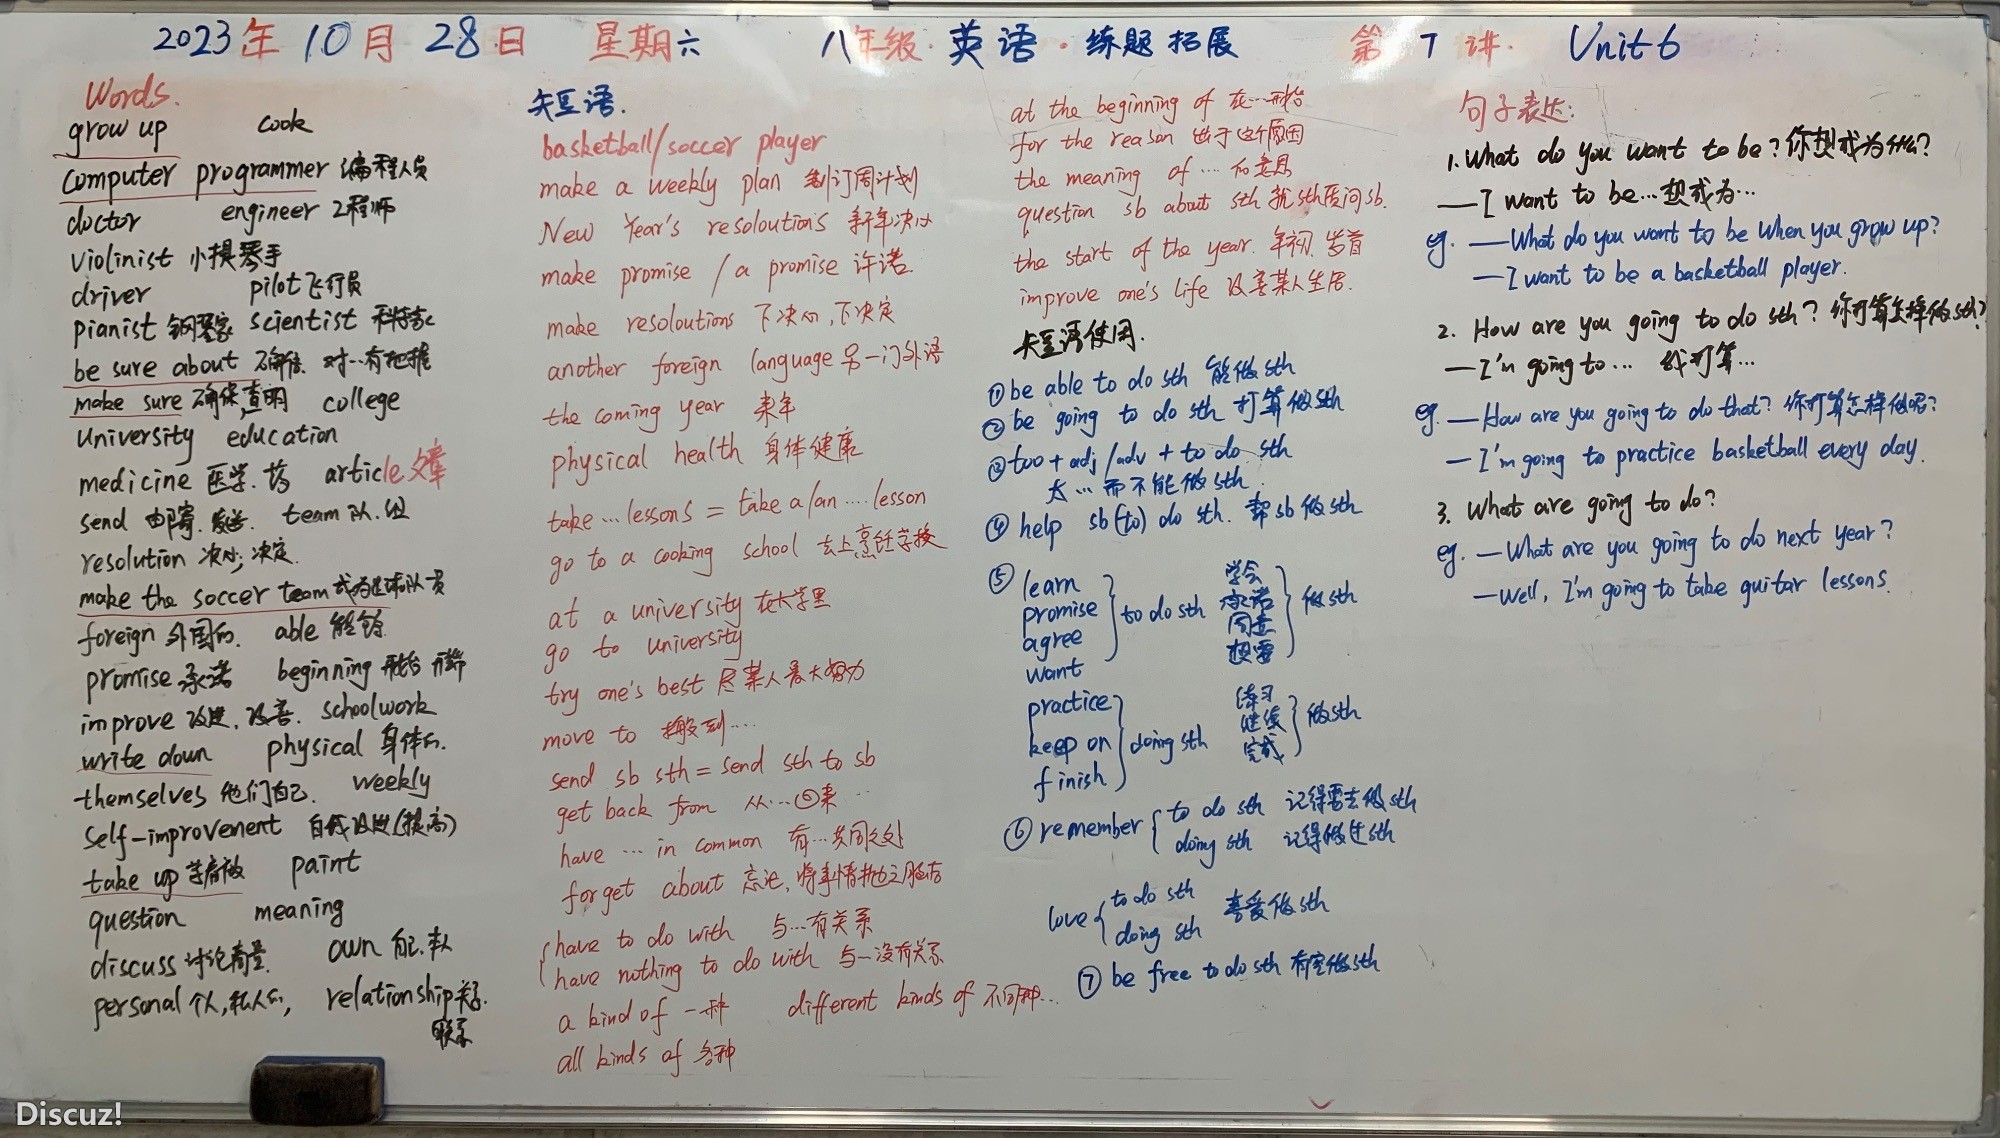 2023年10月28日 星期六 八年级·英语·练题拓展 第7讲. Unit 6
Words.
grow up cook
computer programmer 编程人员
doctor engineer 工程师
violinist 小提琴手
driver pilot 飞行员
pianist 钢琴家 scientist 科学家
be sure about 确信. 对…有把握
make sure 确保,查明 college
University education
medicine 医学.药 article 文章
send 邮寄.发送. team 队.组
resolution 决心;决定.
make the soccer team 成为足球队员
foreign 外国的. able 能够
promise 承诺 beginning 开始 开端
improve 改进.改善. schoolwork
write down physical 身体的.
themselves 他们自己. weekly
self-improvement 自我改进(提高)
take up 学着做 paint
question meaning
discuss 讨论商量. own 自己.本人
personal 个人,私人的, relationship 关系.
联系
短语.
basketball/soccer player
make a weekly plan 制订周计划
New Year's resoloutions 新年决心
make promise / a promise 许诺
make resoloutions 下决心,下决定
another foreign language 另一门外语
the coming year 来年
physical health 身体健康
take … lessons = take a/an …. lesson
go to a cooking school 去上烹饪学校
at a university 在大学里
go to university
try one's best 尽某人最大努力
move to 搬到….
send sb sth = send sth to sb
get back from 从…回来…
have … in common 有…共同之处
forget about 忘记,将事情抛之脑后
have to do with 与…有关系
have nothing to do with 与…没有关系
a kind of 一种 different kinds of 不同种…
all kinds of 各种
at the beginning of 在…开始
for the reason 出于这个原因
the meaning of …. 的意思
question sb about sth 就sth质问sb.
the start of the year. 年初.岁首
improve one's life 改善某人生活.
短语使用.
① be able to do sth 能做sth
② be going to do sth 打算做sth
③ too + adj/adv + to do sth
太…而不能做sth.
④ help sb (to) do sth. 帮sb做sth
⑤ learn 学会
promise to do sth 承诺 做sth
agree 同意
want 想要
practice 练习
keep on doing sth 继续 做sth
finish 完成
⑥ remember to do sth 记得要去做sth
doing sth 记得做过sth
love to do sth 喜爱做sth
doing sth
⑦ be free to do sth 有空做sth
句子表达:
1. What do you want to be? 你想成为什么?
—I want to be… 想成为…
eg. —What do you want to be when you grow up?
—I want to be a basketball player.
2. How are you going to do sth? 你打算怎样做sth?
—I'm going to … 我打算…
eg. —How are you going to do that? 你打算怎样做呢?
—I'm going to practice basketball every day.
3. What are going to do?
eg. —What are you going to do next year?
—Well, I'm going to take guitar lessons.
Discuz!